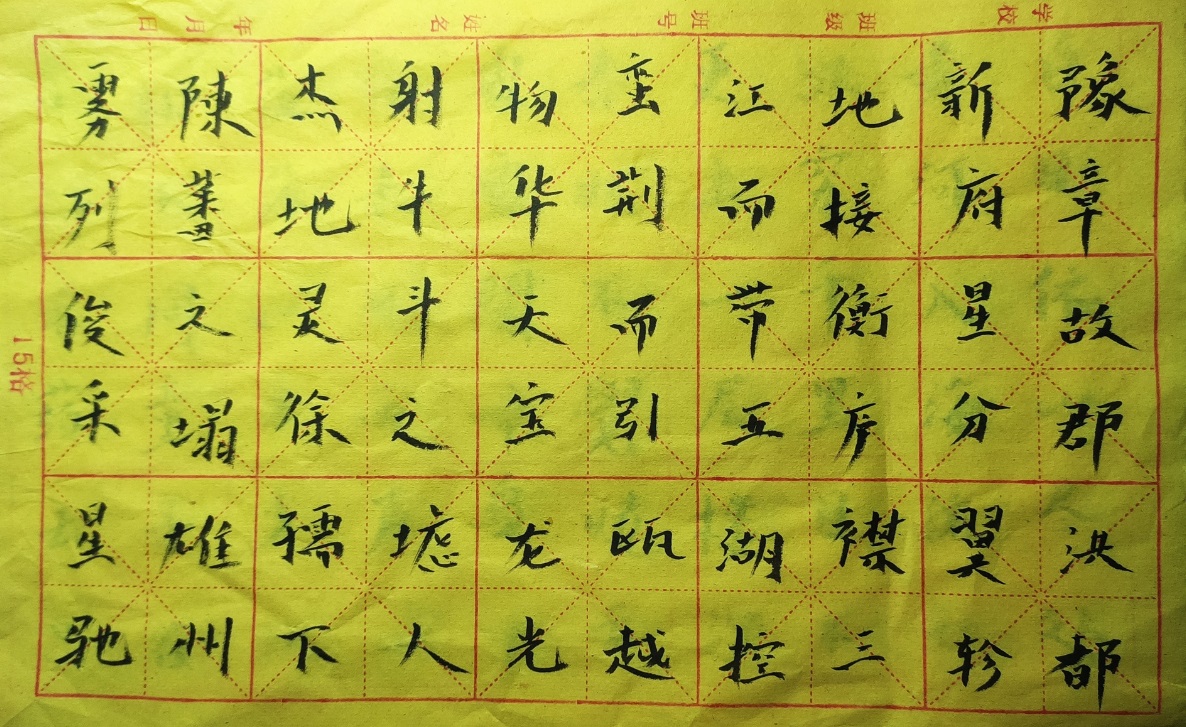 学校 班级 班号 姓名 年 月 日
豫章故郡洪都
新府星分翼轸
地接衡庐襟三
江而带五湖控
蛮荆而引瓯越
物华天宝龙光
射牛斗之墟人
杰地灵徐孺下
陳蕃之塌雄州
雾列俊采星驰
15格